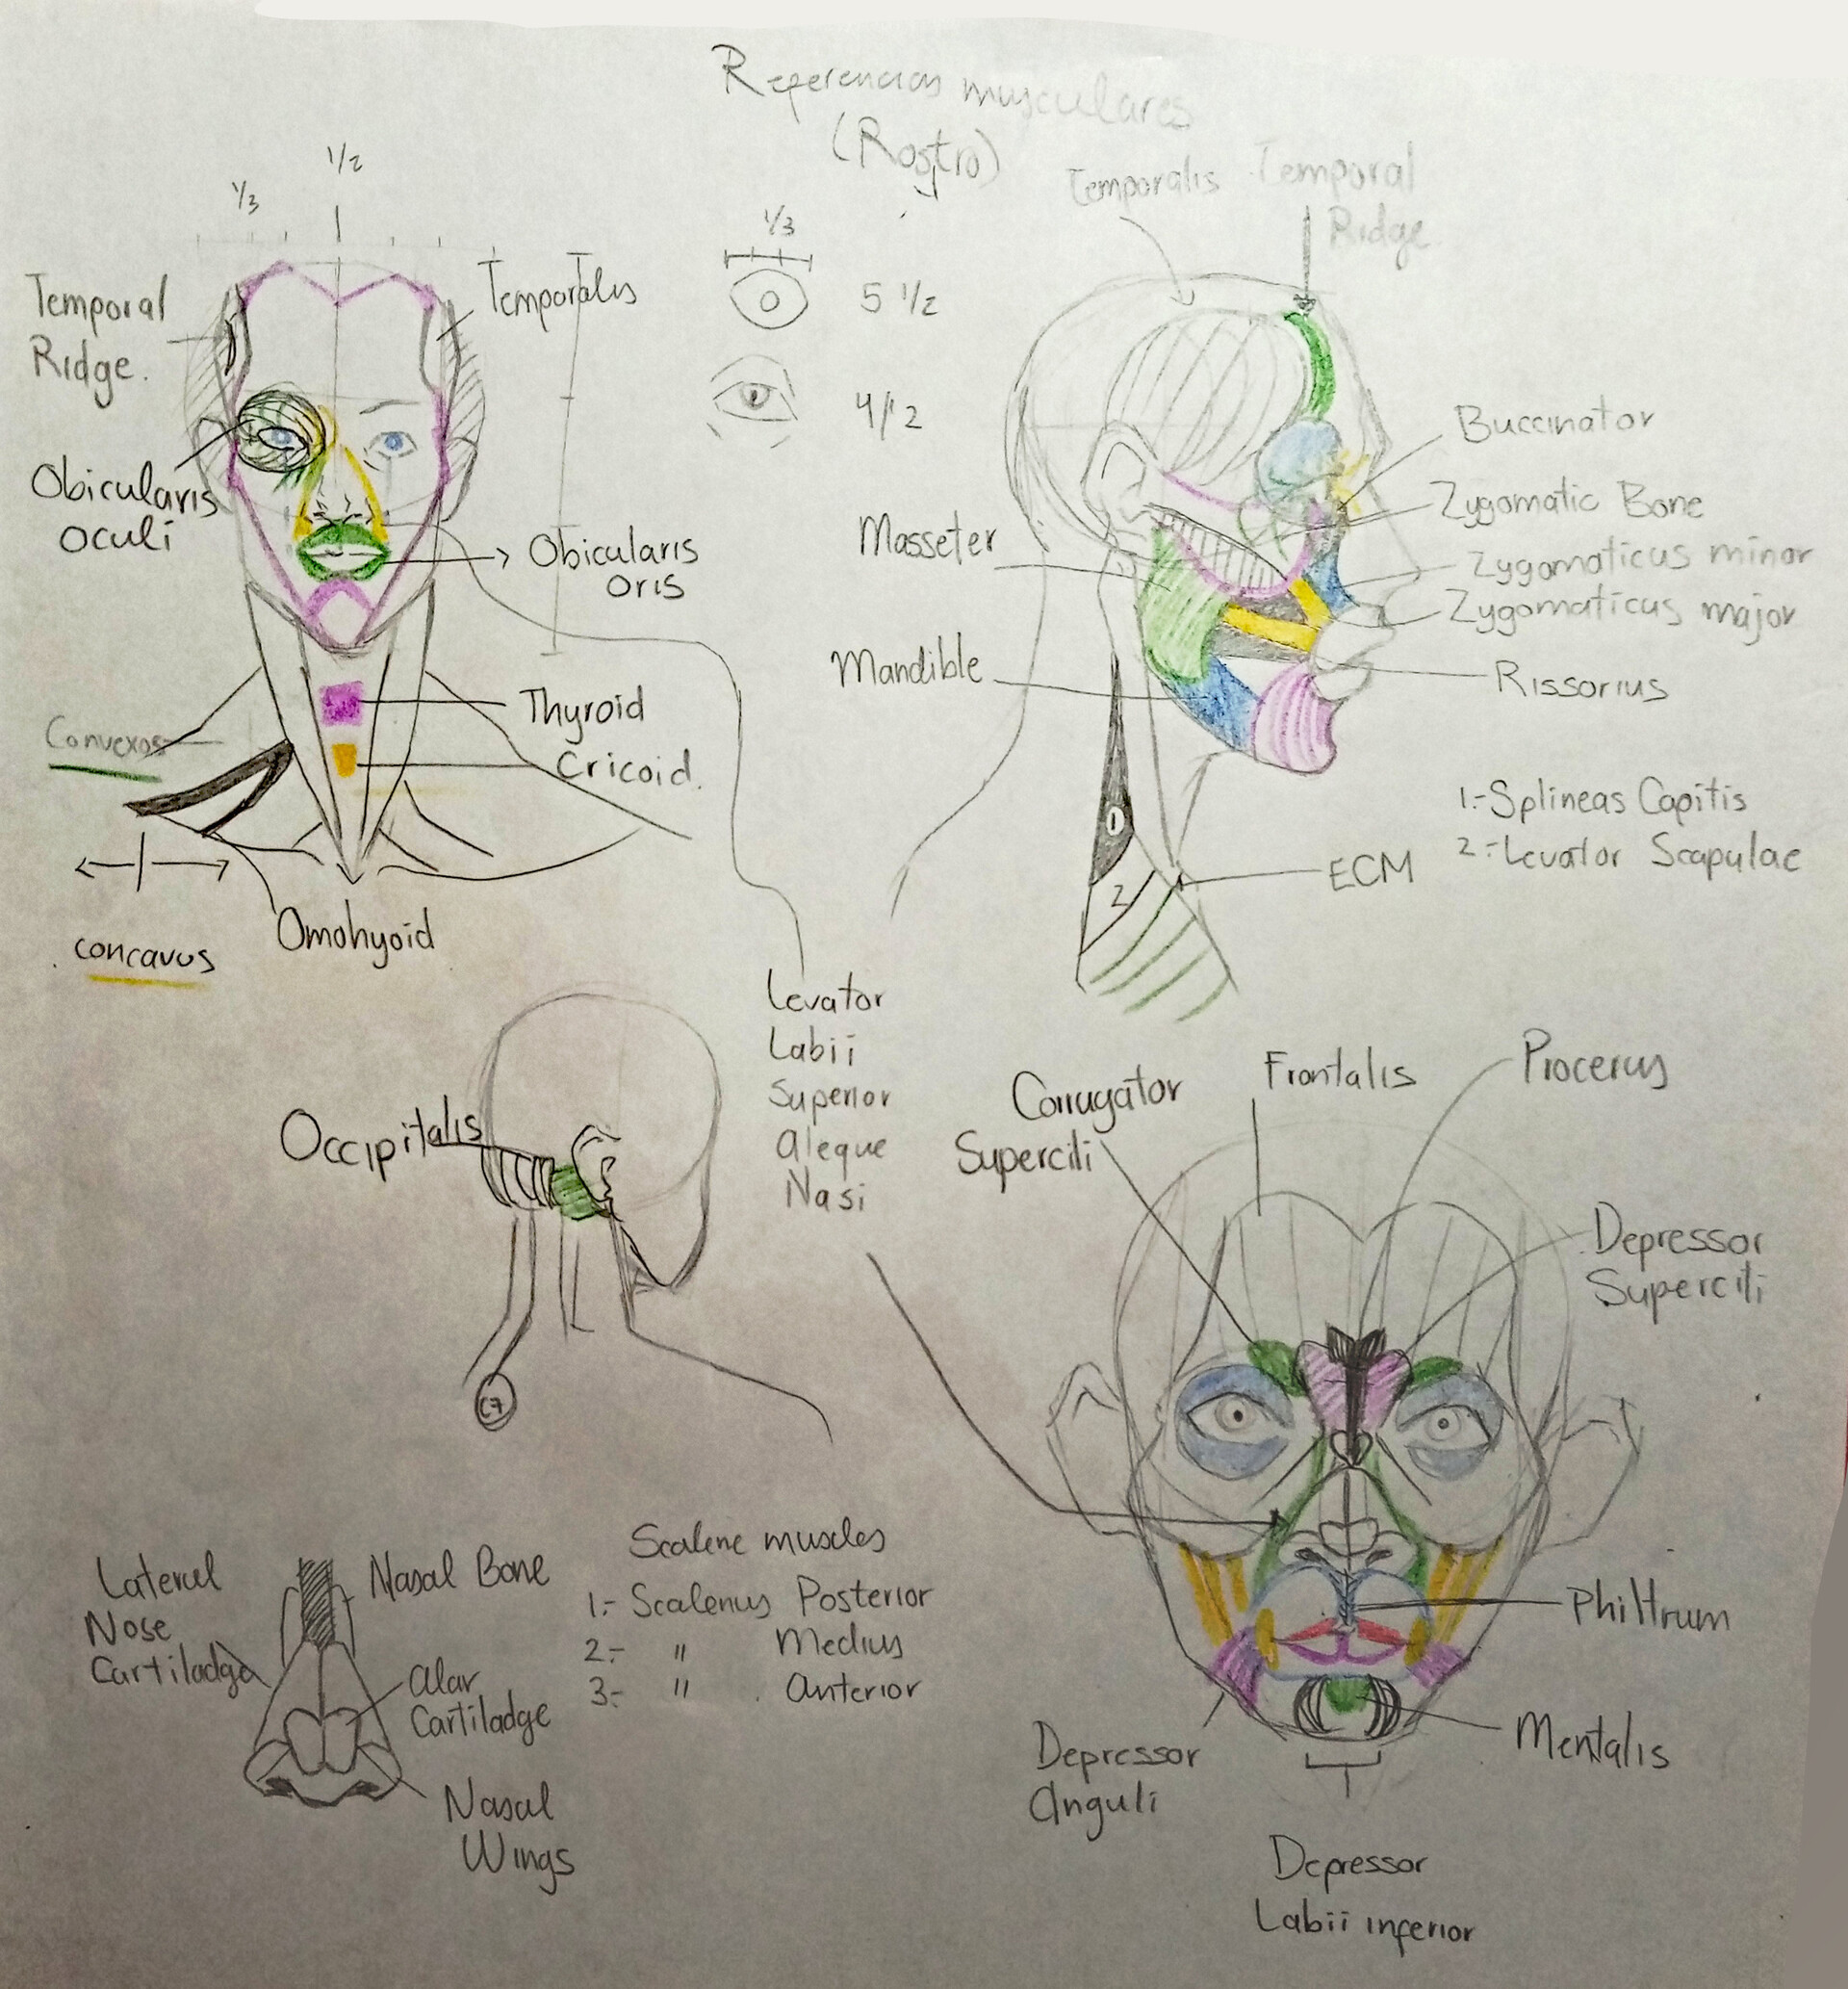 Referencias musculares
(Rostro)
1/3
1/2
Temporal
Ridge.
Temporalis
Obicularis
oculi
Obicularis
Oris
Thyroid
Cricoid.
Convexos
concavos
Omohyoid
1/3
5 1/2
4/2
Temporalis
Temporal
Ridge
Buccinator
Zygomatic Bone
Zygomaticus minor
Zygomaticus major
Rissorius
Masseter
Mandible
1
2
ECM
1.- Splineas Capitis
2.- Levator Scapulae
Levator
Labii
Superior
Aleque
Nasi
Occipitalis
C7
Corrugator
Supercili
Frontalis
Procerus
Depressor
Supercili
Philtrum
Mentalis
Depressor
Anguli
Depressor
Labii inferior
Lateral
Nose
Cartiladge
Nasal Bone
Alar
Cartiladge
Nasal
Wings
Scalene muscles
1.- Scalenus Posterior
2.- " Medius
3.- " Anterior